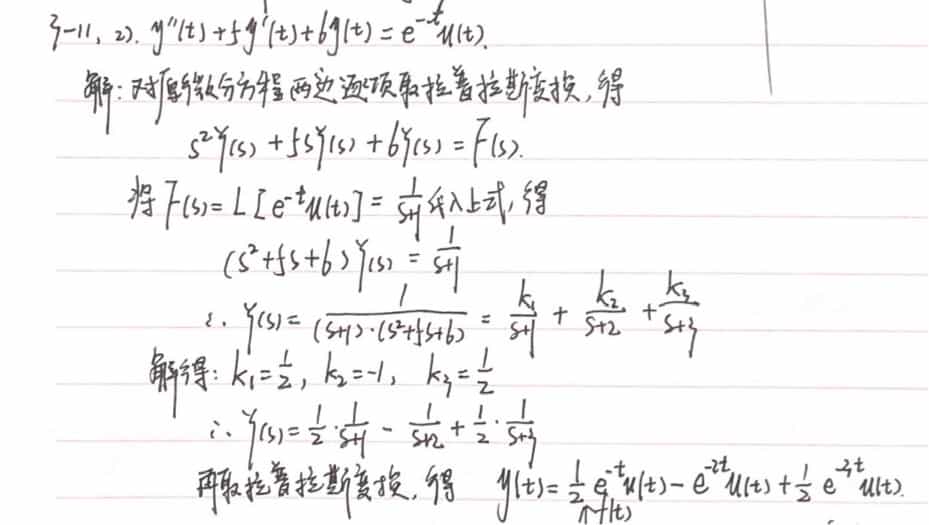 3-11, 2). y''(t)+5y'(t)+6y(t)=e^{-t}u(t).
解:对原微分方程两边逐项取拉普拉斯变换,得
s²Y(s)+5sY(s)+6Y(s)=F(s).
将F(s)=L[e^{-t}u(t)]=1/(s+1)代入上式,得
(s²+5s+6)Y(s)=1/(s+1)
∴ Y(s)=1/((s+1)·(s²+5s+6))=k₁/(s+1)+k₂/(s+2)+k₃/(s+3)
解得:k₁=1/2, k₂=-1, k₃=1/2
∴ Y(s)=1/2·1/(s+1)-1/(s+2)+1/2·1/(s+3)
再取拉普拉斯变换,得 y(t)=1/2 e^{-t}u(t)-e^{-2t}u(t)+1/2 e^{-3t}u(t).
f(t)